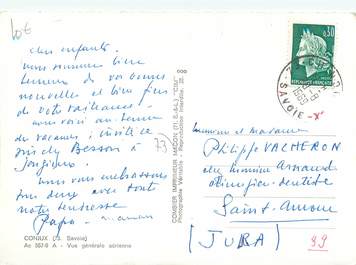 10€
chers enfants.
nous sommes bien
heureux de vos bonnes
nouvelles et bien fiers
de votre vaillance.
nous voici au terme
de vacances, invités ce
Besson à
Jongieux.
(73)
nous vous embrassons
tous deux avec tout
notre tendresse
Papa - maman
CONJUX (73. Savoie)
Ac 357-9 A - Vue générale aérienne
COMBIER IMPRIMEUR MACON (71. S.-&-L.) "CIM"
Photographie Véritable - Reproduction Interdite.
0,30
REPUBLIQUE FRANCAISE
SAVOIE
-x-
Monsieur et Madame
Philippe VACHERON
chez Monsieur Arnaud
chirurgien-dentiste
Saint-Amour
(JURA)
39